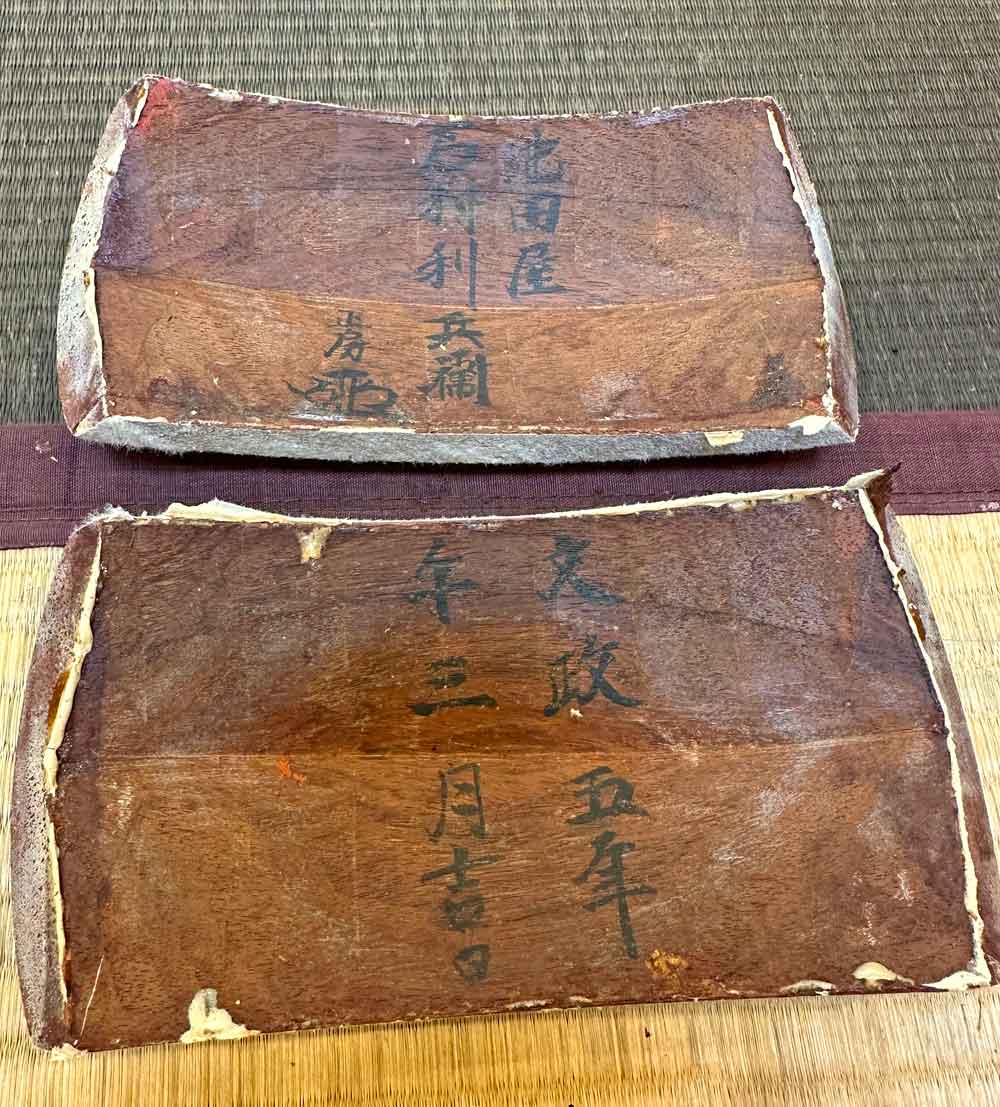 池田屋
石村利兵衛
文政五年
午三月吉日